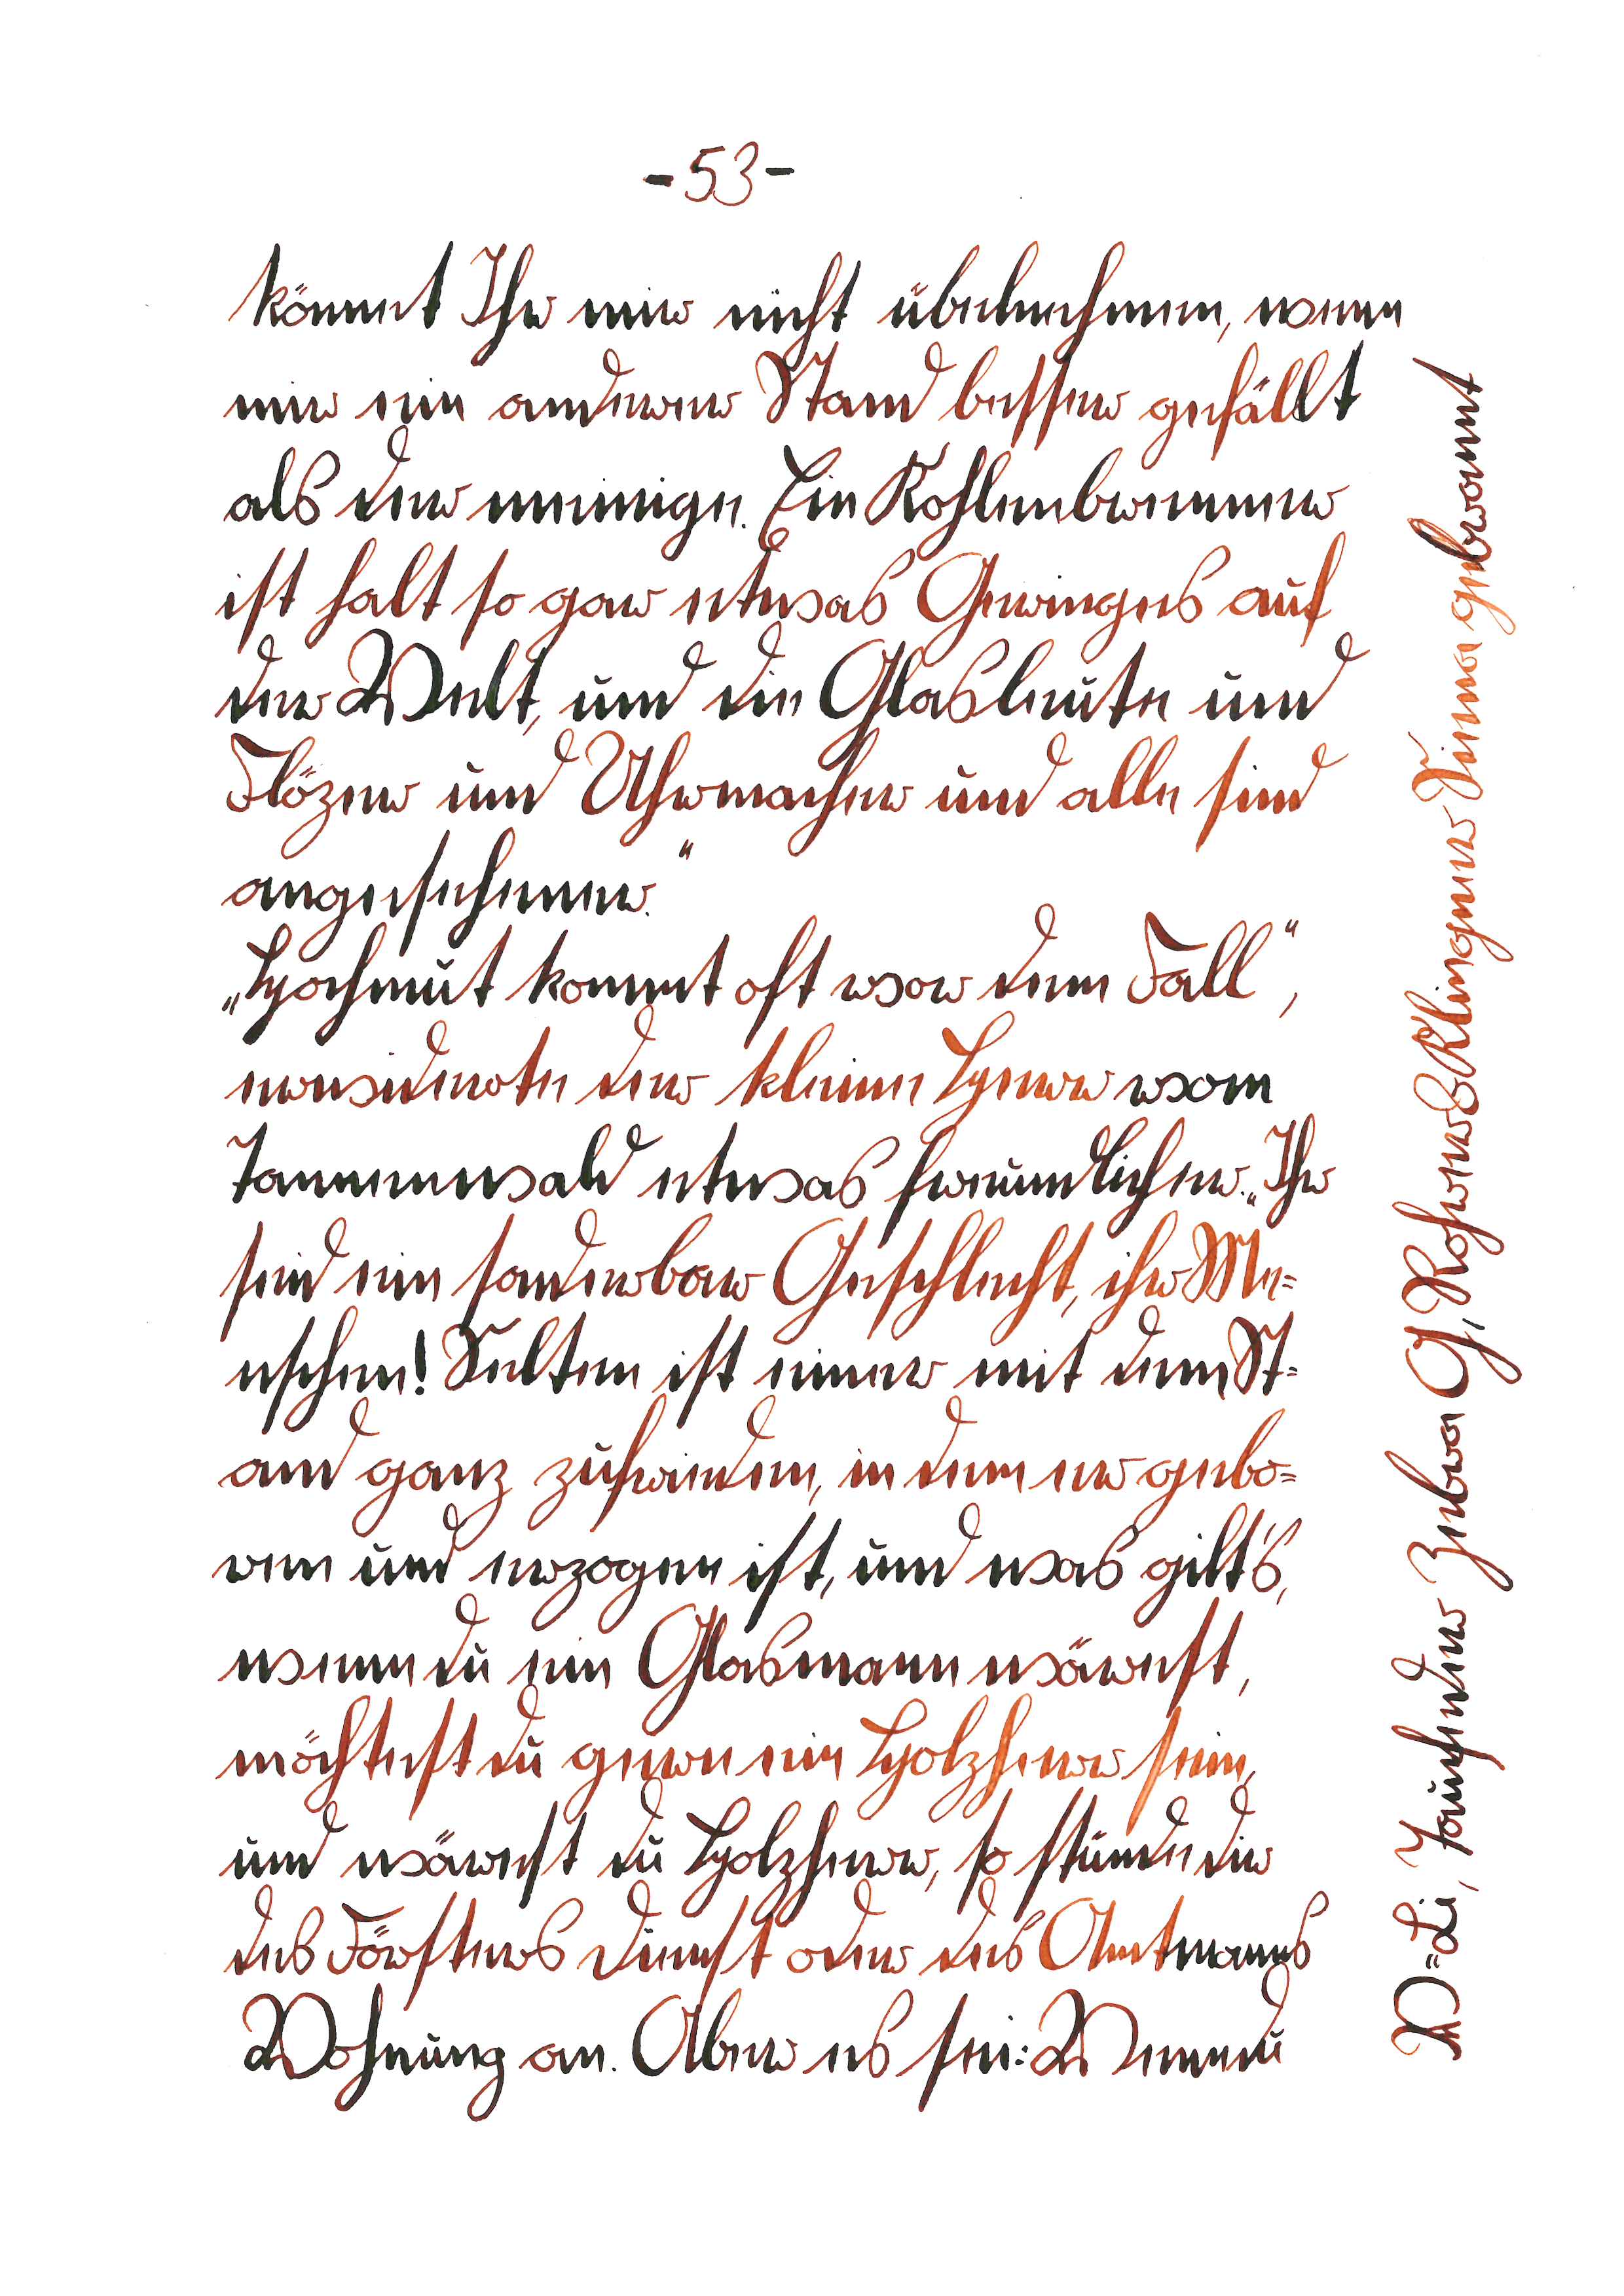 -53-
könnt Ihr mir nicht übelnehmen, wenn
mir ein anderer Stand besser gefällt
als der meinige. Ein Kohlenbrenner
ist halt so gar etwas Geringes auf
der Welt, und die Glasleute und
Flözer und Uhrmacher und alle sind
angesehener."
„Hochmut kommt oft vor dem Fall",
erwiderte der kleine Herr vom
Tannenwald etwas freundlicher. „Ihr
seid ein sonderbar Geschlecht, ihr Me=
nschen! Selten ist einer mit dem St=
and ganz zufrieden, in dem er gebo=
ren und erzogen ist, und was gilt's,
wenn du ein Glasmann wärest,
möchtest du gerne ein Holzherr sein,
und wärest du Holzherr, so stünde dir
des Försters Dienst oder des Amtmanns
Wohnung an. Aber es sei: Wenn du
Tauchender Zebra G, Rohrer & Klingner Siena gebrannt